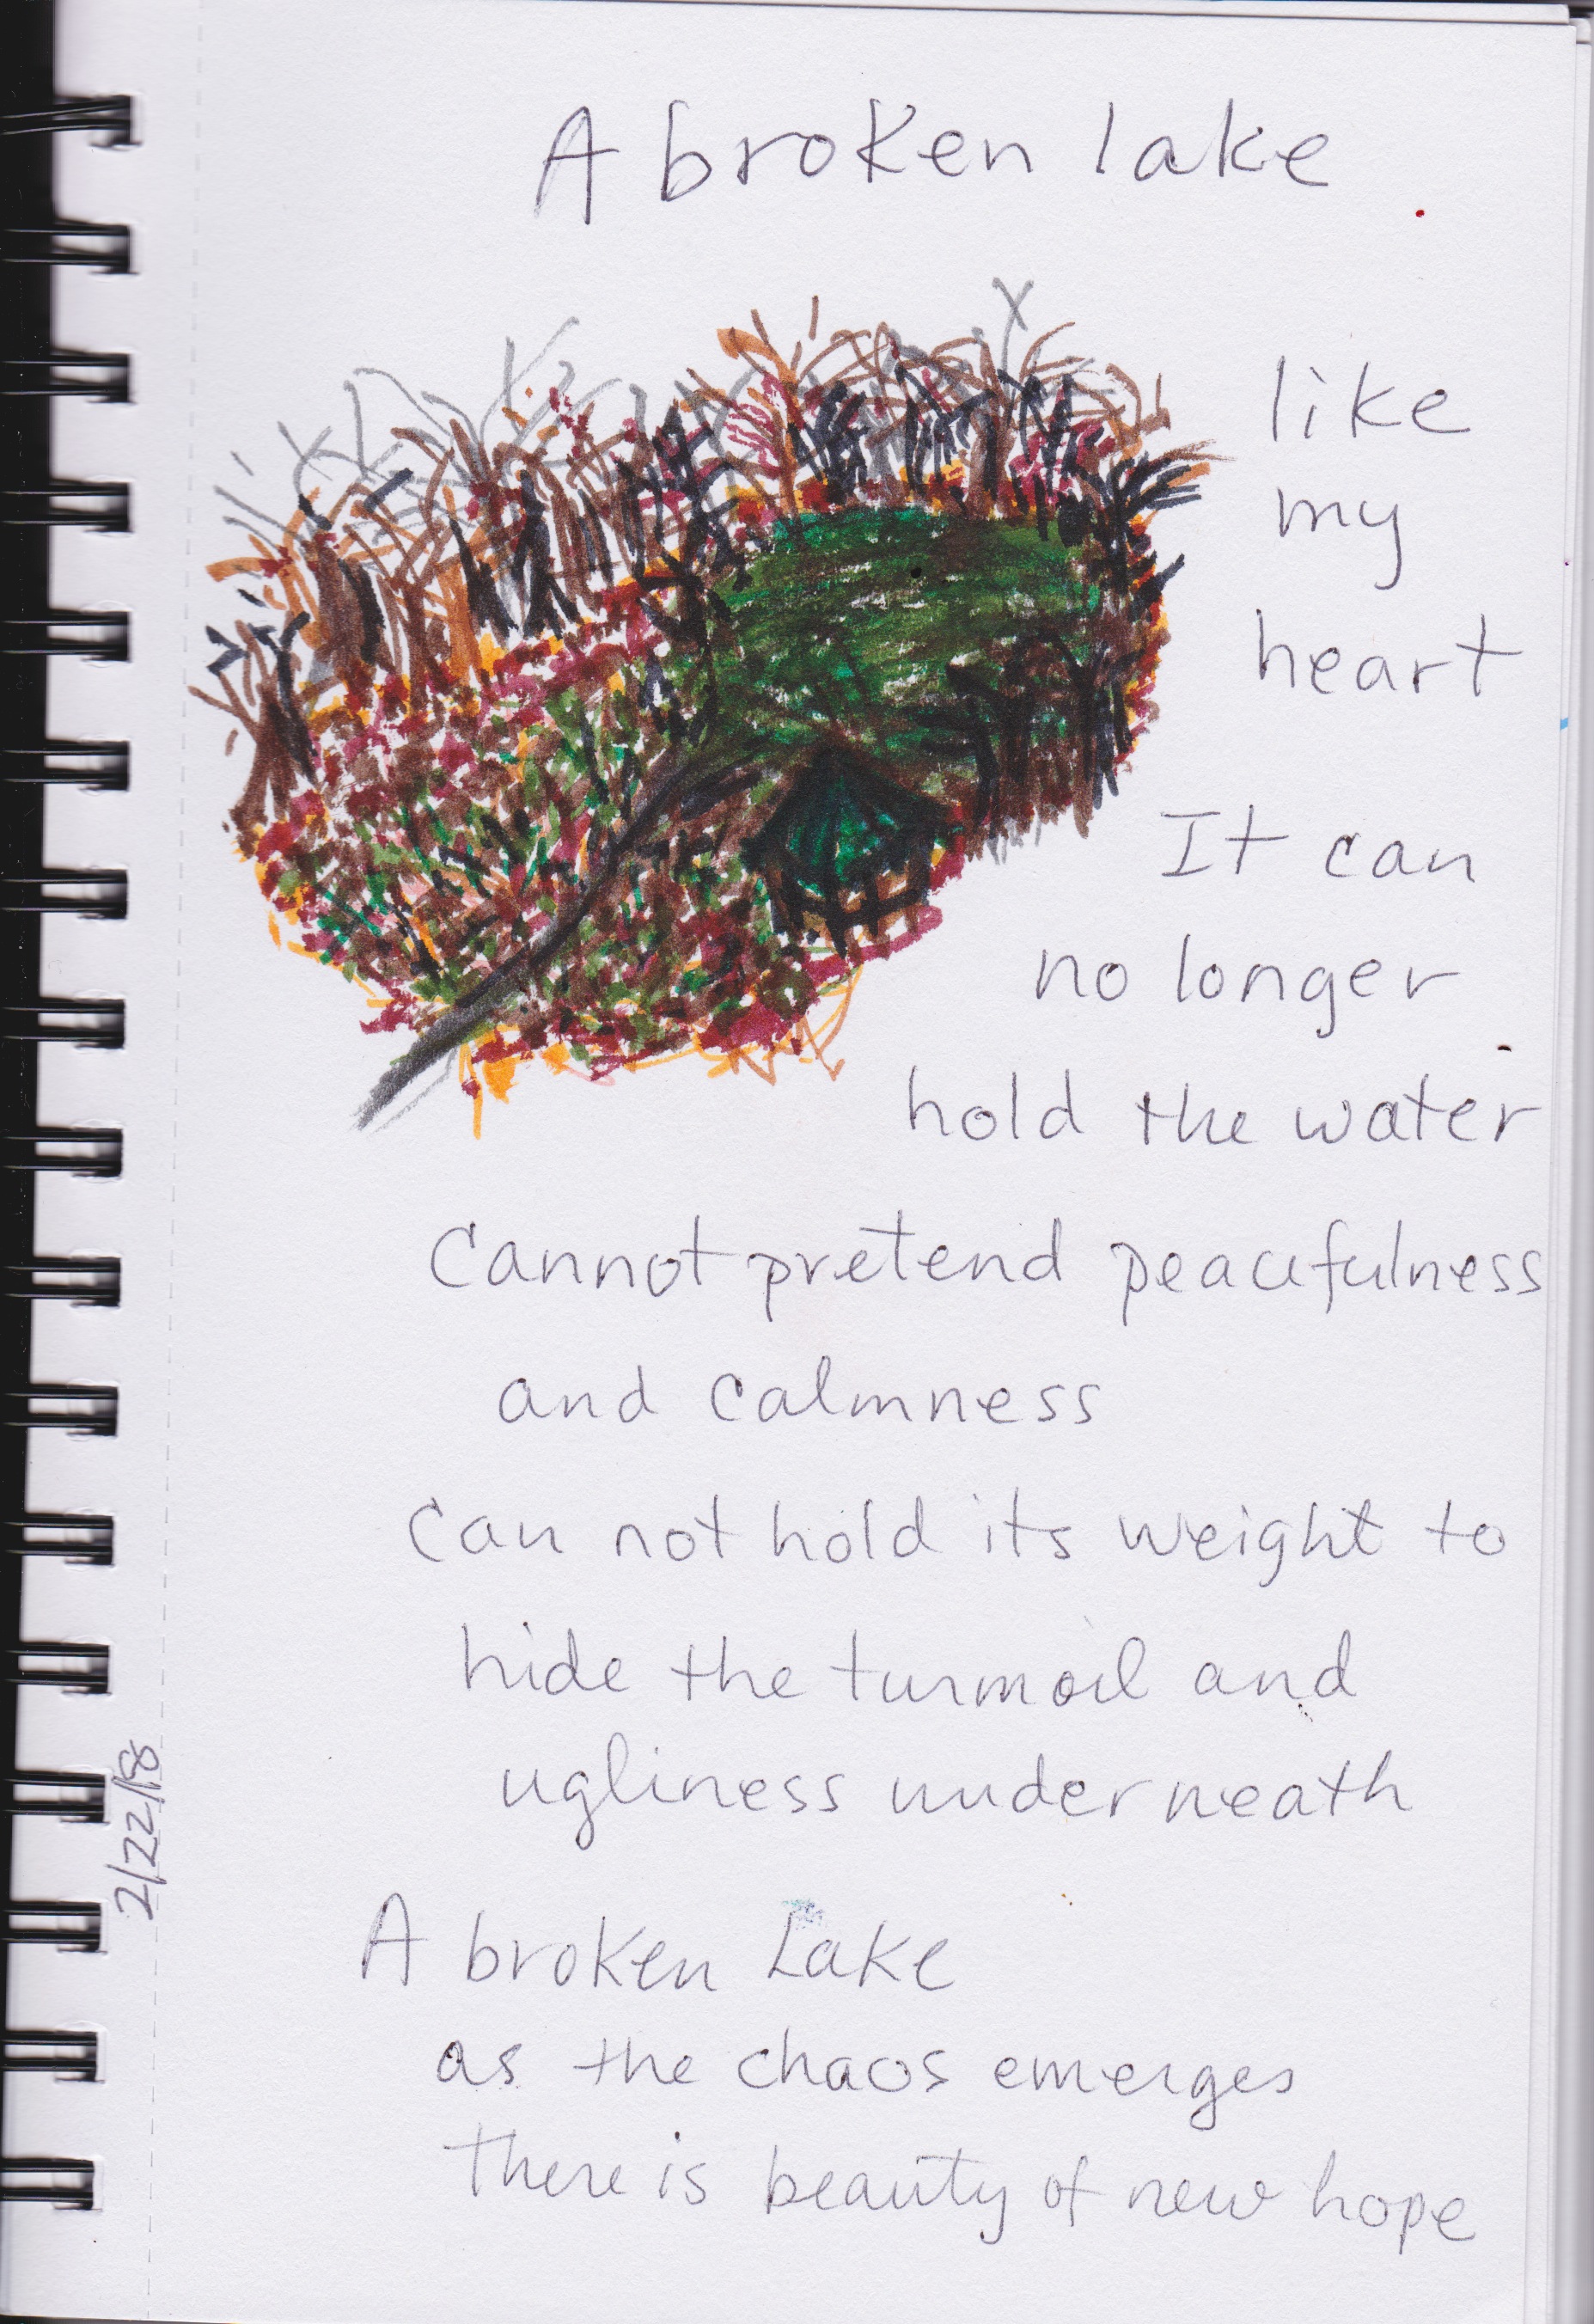 A broken lake
like
my
heart
It can
no longer
hold the water
Cannot pretend peacefulness
and calmness
can not hold its weight to
hide the turmoil and
ugliness underneath
A broken Lake
as the chaos emerges
there is beauty of new hope
2/22/18